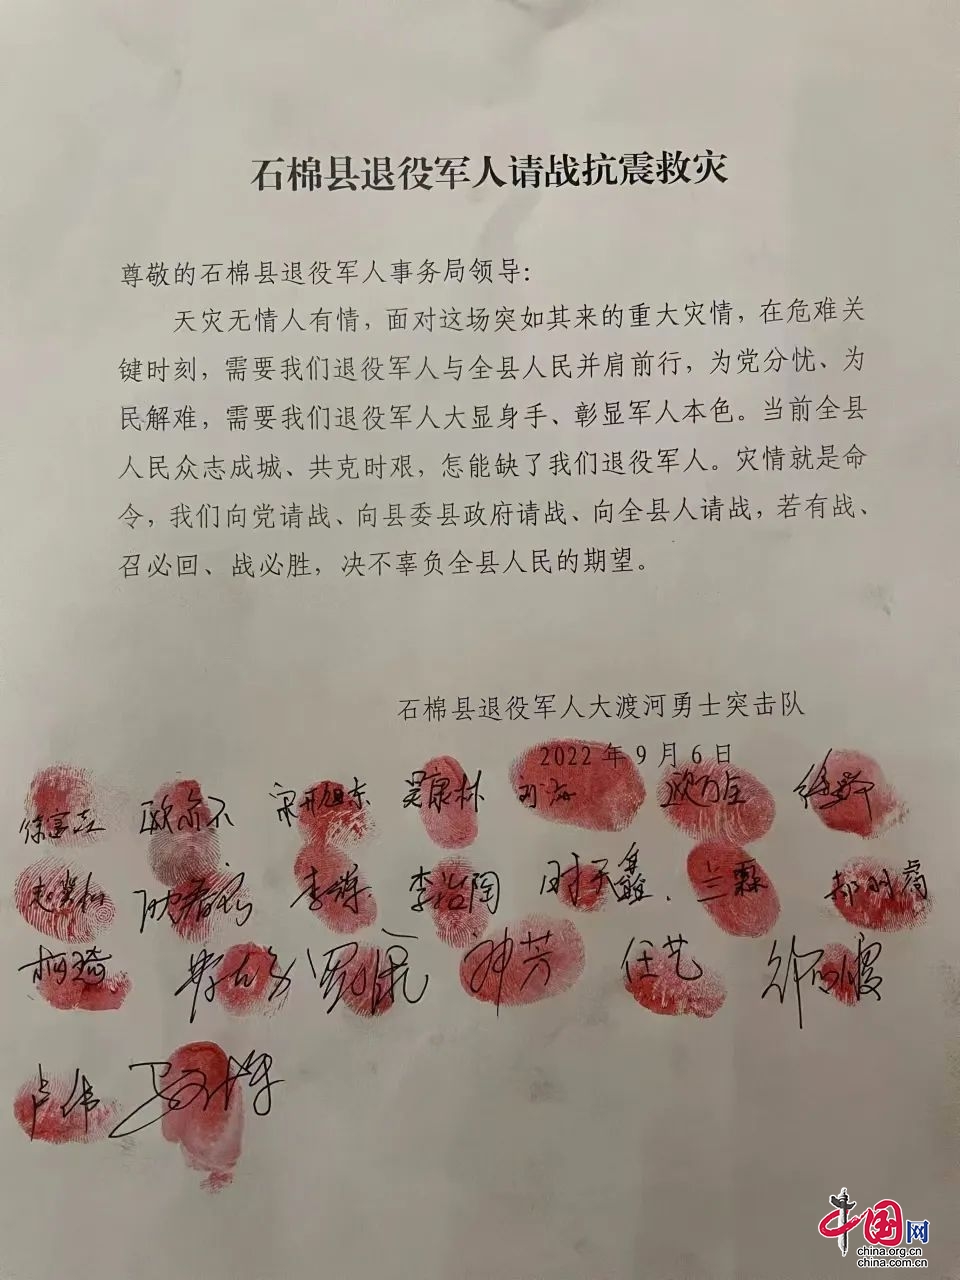 石棉县退役军人请战抗震救灾
尊敬的石棉县退役军人事务局领导：
天灾无情人有情，面对这场突如其来的重大灾情，在危难关
键时刻，需要我们退役军人与全县人民并肩前行，为党分忧、为
民解难，需要我们退役军人大显身手、彰显军人本色。当前全县
人民众志成城、共克时艰，怎能缺了我们退役军人。灾情就是命
令，我们向党请战、向县委县政府请战、向全县人请战，若有战、
召必回、战必胜，决不辜负全县人民的期望。
石棉县退役军人大渡河勇士突击队
2022年9月6日
吴康林 刘海
李涛 李治陶 兰霖
柯琦 钟芳 任艺
卢伟
中国网
china.org.cn
china.com.cn